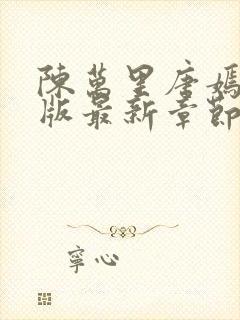 陳萬里唐嫣
版最新章節
寧心